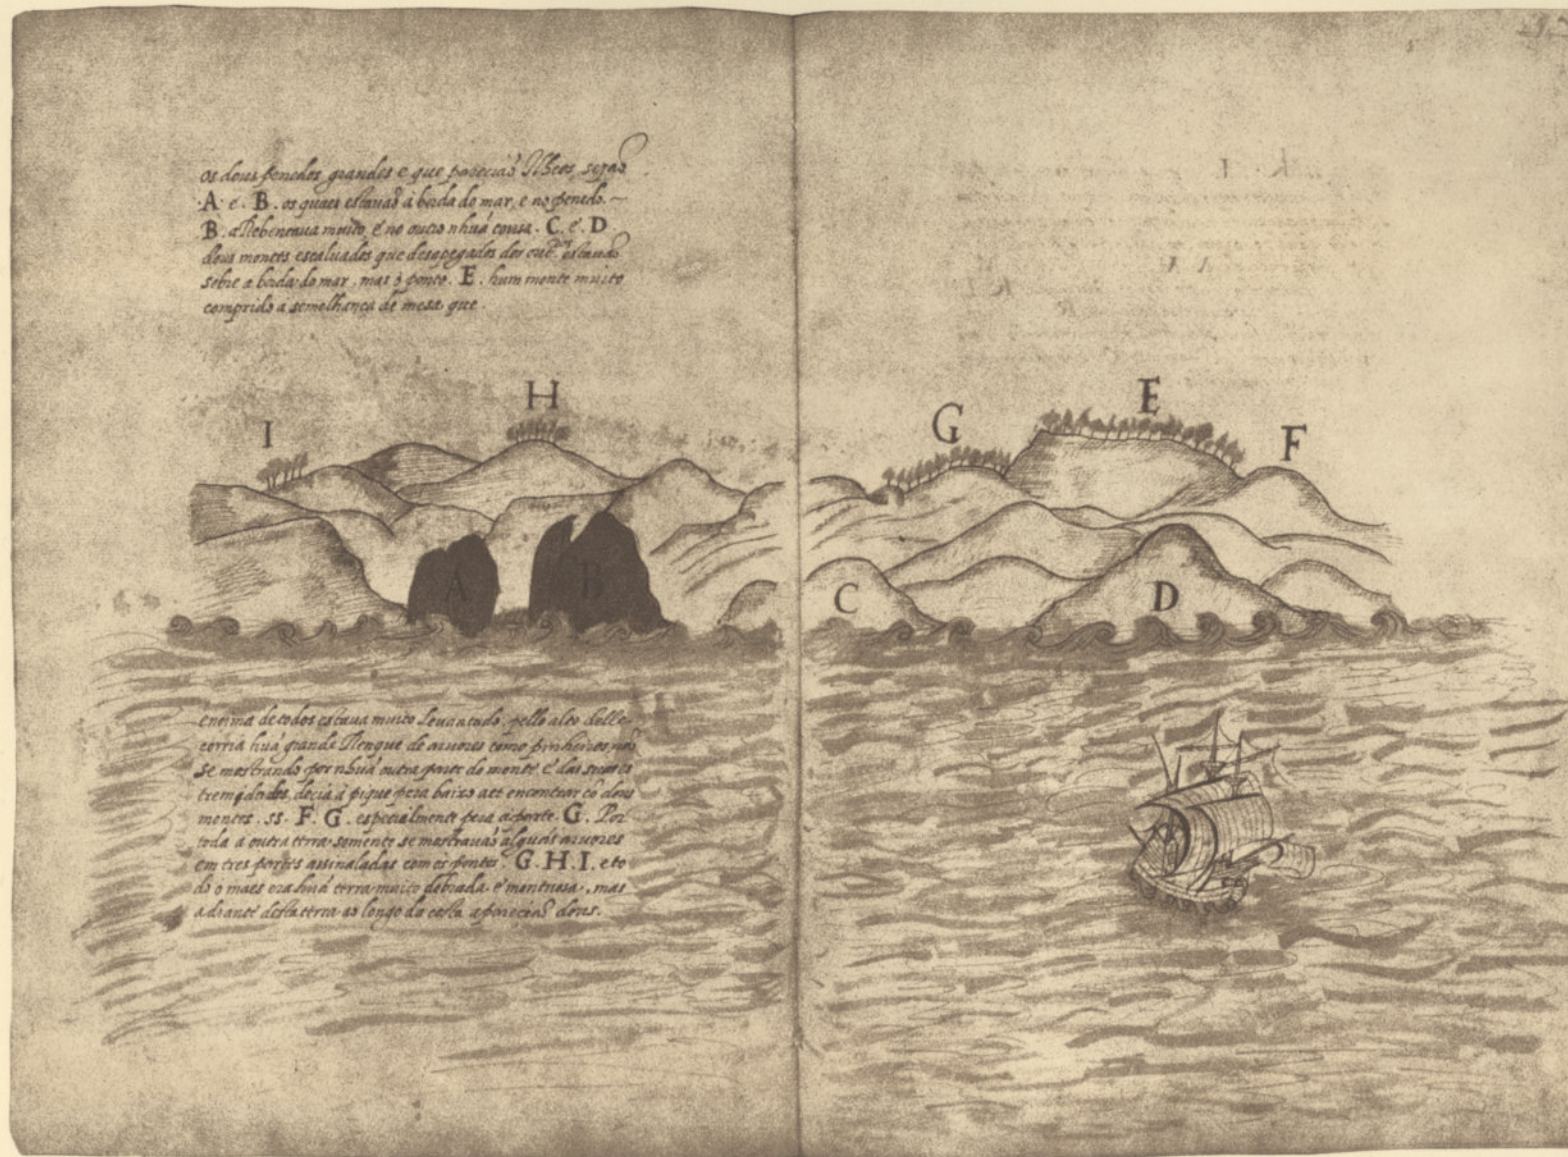 os dous penedos grandes e que pareciaõ Ilheos, seraõ
A e. B. os quaes estauaõ a borda do mar, e no penedo.
B. arrebentaua muito, e no outro nhuã cousa. C e. D
dous montes escaluados que desapegados dos outros estauaõ
sobre a borda do mar. mas o ponto. E. hum monte muito
comprido a semelhança de mesa, que.
H
I
E
G
F
A
B
C
D
encima de todos estaua muito leuantado, pello alto delle
corria huã grande Renque de aruores como pinheiros naõ
se mostrando por nhuã outra parte do monte e das
decia a pique pera baixo ate encontrar cõ dous
montes. ss. F. G. especialmente pera a parte. G. Por
toda a outra terra somente se mostrauaõ alguãs aruores
em tres partes assinaladas com os pontos. G. H. I. e to
do o mais era huã terra muito dobrada, e montuosa, mas
adiante desta terra ao longo da costa apareciaõ dous.